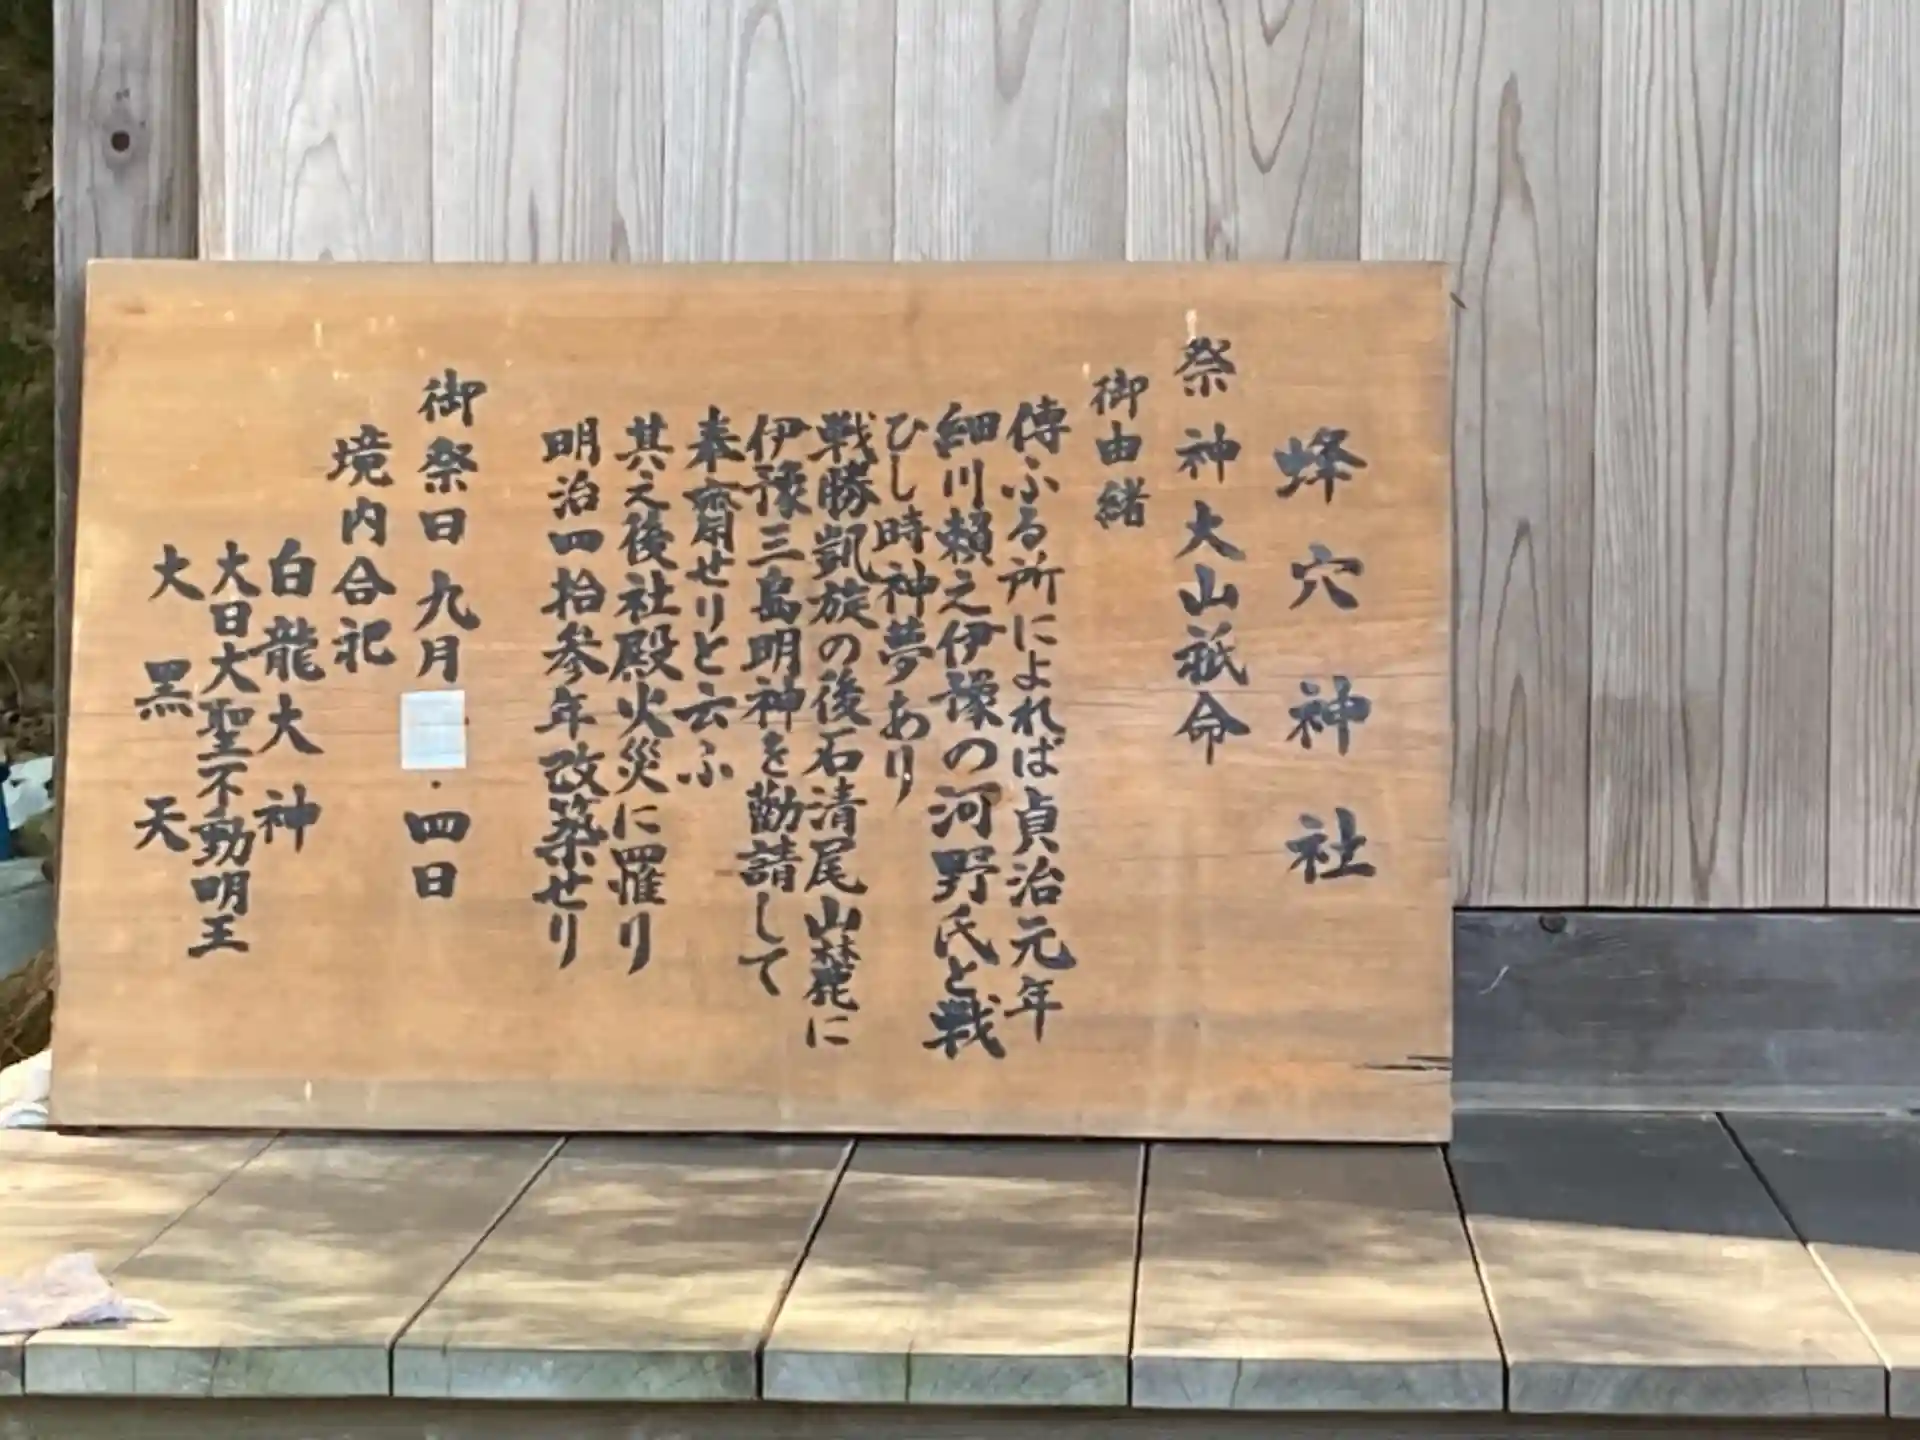 蜂穴神社
祭神大山祇命
御由緒
傳ふる所によれば貞治元年
細川頼之伊豫の河野氏と戦
ひし時神夢あり
戦勝凱旋の後石清尾山麓に
伊豫三島明神を勸請して
奉齋せりと云ふ
其之後社殿火災に罹り
明治四拾参年改築せり
御祭日九月 ・四日
境内合祀
白龍大神
大日大聖不動明王
大黒天